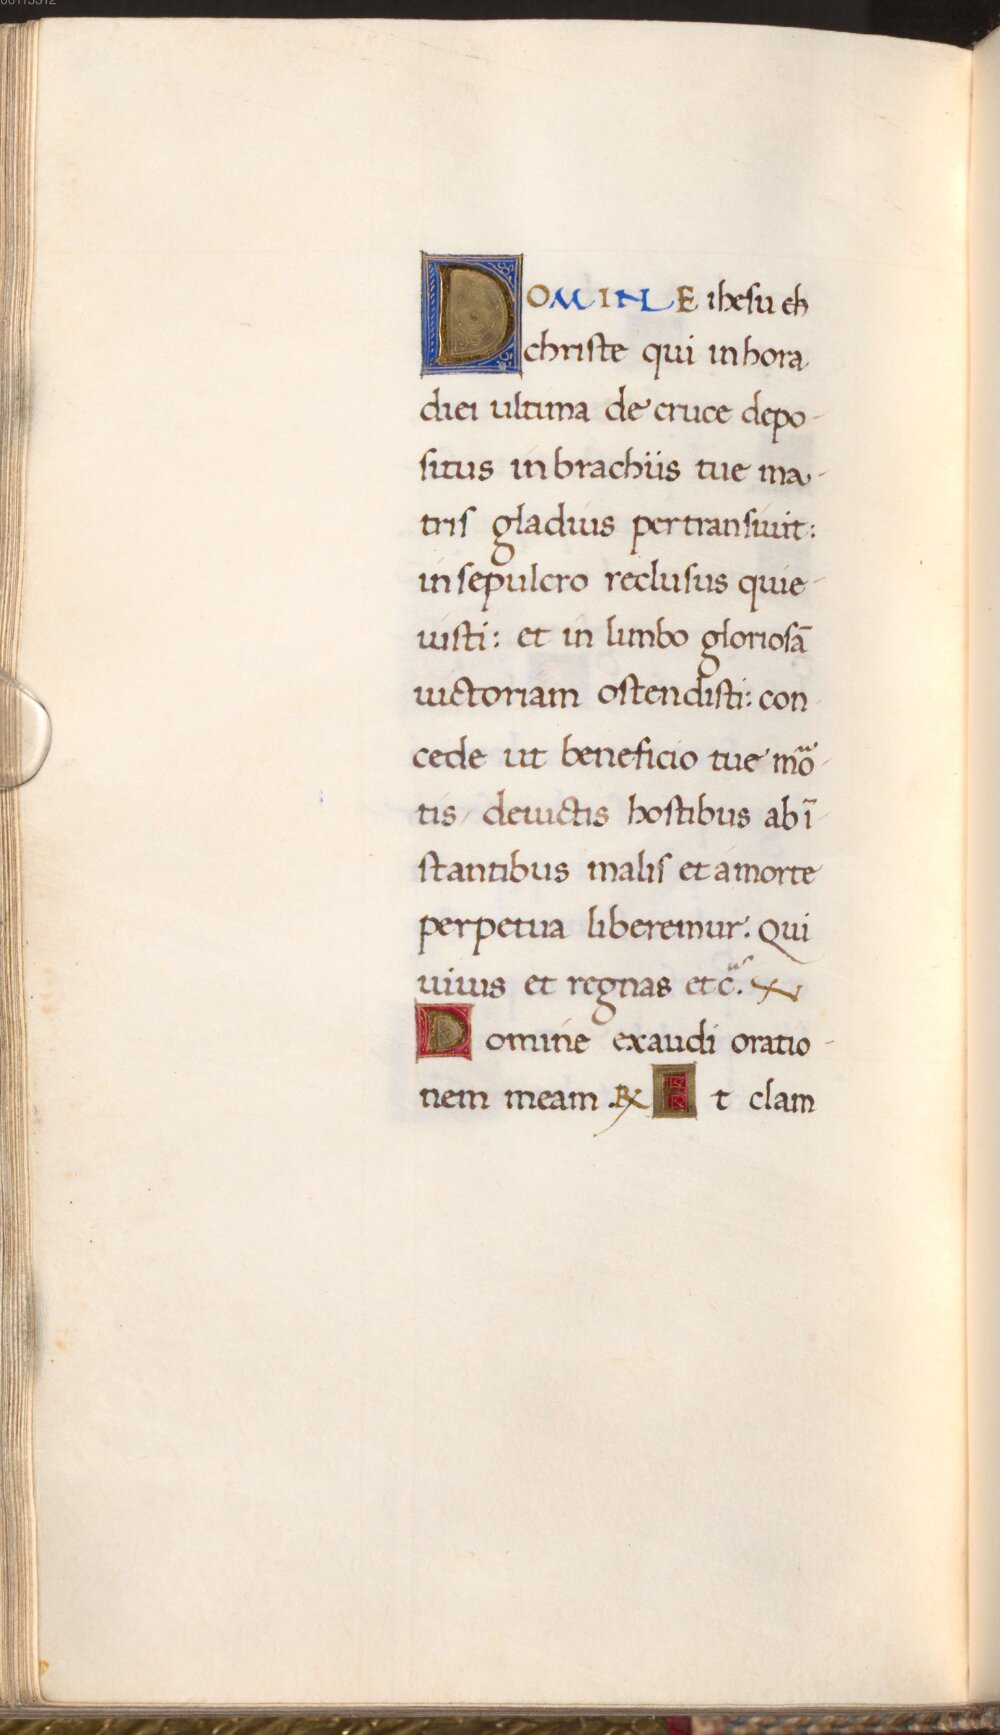 DOMINE ihesu ch
christe qui in hora
diei ultima de cruce depo-
situs in brachiis tue ma-
tris gladius pertransiuit:
in sepulcro reclusus quie-
uisti: et in limbo gloriosā
uictoriam ostendisti: con-
cede ut beneficio tue mō-
tis, deuictis hostibus ab ī
stantibus malis et a morte
perpetua liberemur. Qui
uiuis et regnas etc̄.
Domine exaudi oratio-
nem meam. ℟ Et clam